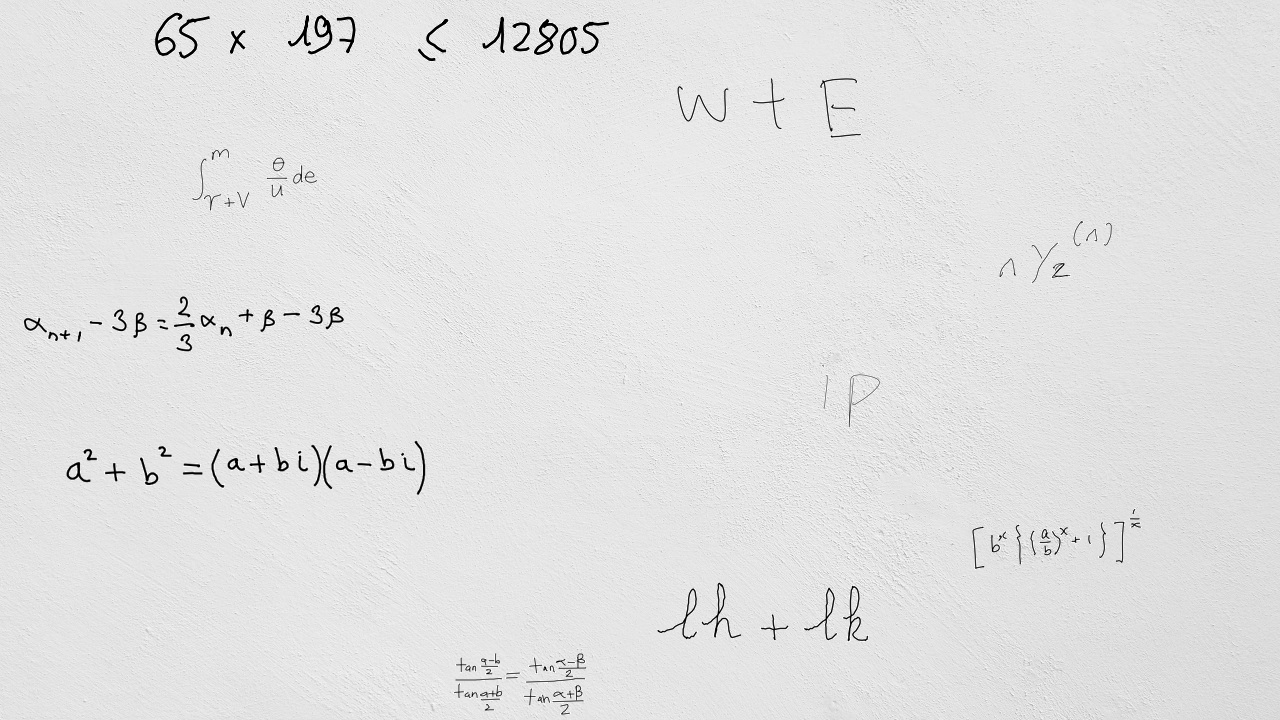 65 × 197 ≤ 12805
W + E
∫_{r+V}^{m} θ/u de
n Y_2^{(n)}
α_{n+1} - 3β = 2/3 α_n + β - 3β
i p
a² + b² = (a + bi)(a - bi)
[b^x {(a/b)^x + 1}]^{1/x}
lh + lk
tan (a-b)/2 / tan (a+b)/2 = tan (α-β)/2 / tan (α+β)/2